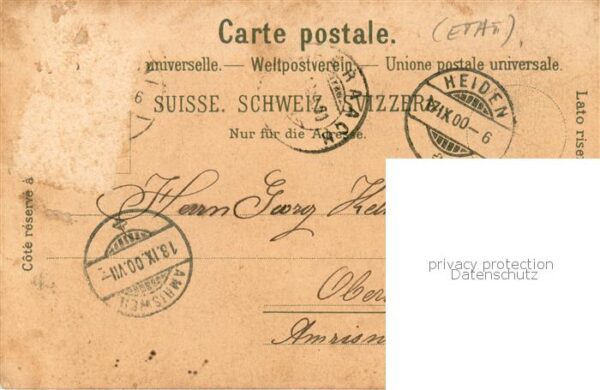 (ETAT)
Carte postale.
universelle. — Weltpostverein. — Unione postale universale.
SUISSE. SCHWEIZ. SVIZZERA
Nur für die Adresse.
Côté réservé à
Lato riser
HEIDEN
IX.00-6
RAACH
AMRISWEIL
18.IX.00.VII-
Herrn Georg
Ober
privacy protection
Datenschutz